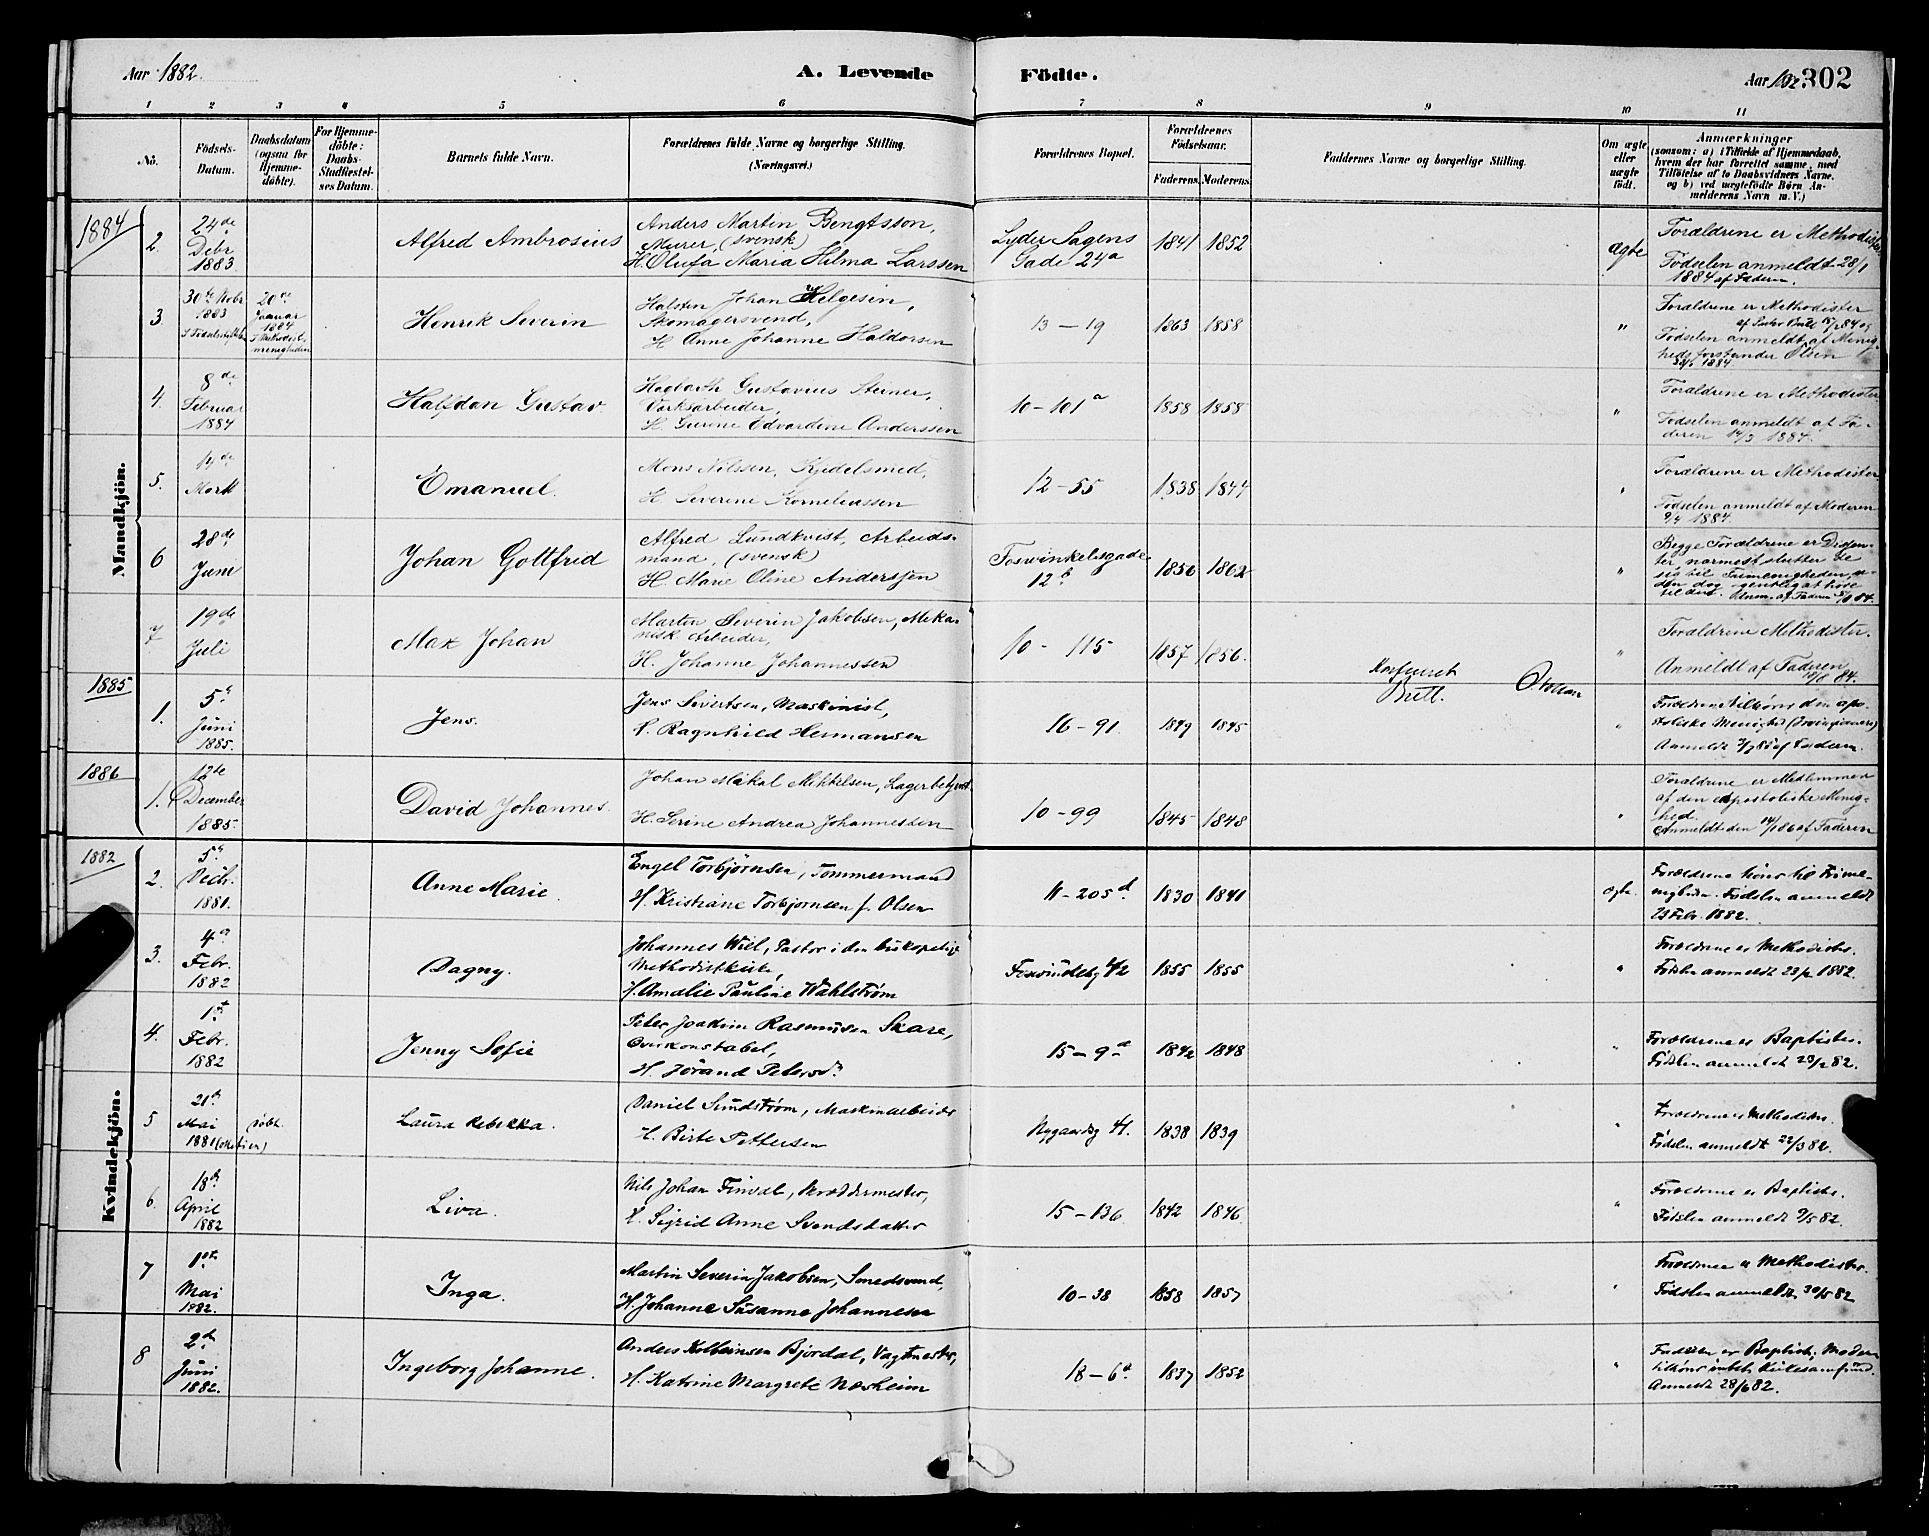 Aar 1882.
A. Levende Födte.
Aar 302
1 2 3 4 5 6 7 8 9 10 11
No.
Födsels-Datum.
Daabsdatum (ogsaa for Hjemme-döbte).
For Hjemme-döbte: Daabs-Stadfæstel-ses Datum.
Barnets fulde Navn.
Forældrenes fulde Navne og borgerlige Stilling. (Næringsvei.)
Forældrenes Bopæl.
Forældrenes Födselsaar.
Faderens. Moderens.
Faddernes Navne og borgerlige Stilling.
Om ægte eller uægte födt.
Anmærkninger
(saasom: a) i Tilfælde af Hjemmedaab,
hvem der har forrettet samme, med
Tilföielse af to Daabsvidners Navne.
og b) ved uægtefödte Börn An-
melderens Navn m. V.)
Mandkjön.
1884
2. 24de Debr 1883
Alfred Ambrosius
Anders Martin Bengtsson,
Murer (svensk)
H. Olufa Maria Hilma Larssen
Lyder Sagens
Gade 24a
1841 1852
ægte
Forældrene er Methodister
Fødselen anmeldt 28/1
1884 af Faderen.
3. 30te Nobr 1883
20de Januar 1884
Methodist-
menigheden
Henrik Severin
Halsten Johan Helgesen,
Skomagersvend,
H. Anne Johanne Haldorsen
13 - 19
1863 1858
"
Forældrene er Methodister
Fødselen anmeldt af Menig-
hedsforstander Olsen
1884.
4. 8de Februar 1884
Halfdan Gustav.
Hagbarth Gustavius Steiner,
Værksarbeider,
H. Gurine Edvardine Anderssen
10 - 101a
1858 1858
"
Forældrene er Methodister
Fødselen anmeldt af Fa-
deren 14/3 1884.
5. 14de Mart
Emanuel.
Mons Nilssen, Kjedelsmed,
H. Severine Korneliussen
12 - 55
1838 1844
"
Forældrene er Methodister
Fødselen anmeldt af Moderen
9/4 1884.
6 28de Juni
Johan Gottfrid
Alfred Lundkvist, Arbeids-
mand, (svensk)
H. Marie Oline Anderssen
Fosvinkelsgade
12b
1856 1862
"
Begge Forældrene er Dissen-
ter, nærmest slutter de
sig til Frimenigheden,
7 19de Juli
Max Johan
Martin Severin Jakobsen, Meka-
nisk Arbeider,
H. Johanne Johannessen
10 - 115
1857 1856.
"
Forældrene Methodister.
Anmeldt af Faderen
1885
1. 5te Juni 1885.
Jens.
Jens Sivertsen, Maskinist,
H. Ragnhild Hermansen
16 - 91
1849 1845
"
Forældrene tilhører den apo-
stoliske Menighed
Anmeldt af Faderen.
1886
1. 12te December 1885.
David Johannes.
Johan Mikal Mikkelsen, Lagerbetjent
H. Serine Andrea Johannessen
10 - 99
1845 1848
"
Forældrene er Medlemmer
af den Apostoliske Menig-
hed.
Anmeldt den 14/1 86 af Faderen
Kvindekjön.
1882
2. 5te Decb. 1881.
Anne Marie.
Engel Torbjörnsen, Tømmermand
H. Kristiane Torbjörnsen f. Olsen
11 - 205d
1830 1841
ægte.
Forældrene hører til Frime-
nigheden. Fødslen anmeldt
23 Febr. 1882.
3. 4de Febr. 1882
Dagny.
Johannes Wiel, Pastor i den biskopelige
Methodistkirke,
H. Amalie Pauline Wahlstrøm
1855 1855
"
Forældrene er Methodister.
Fødslen anmeldt 23/2 1882.
4. 1ste Febr. 1882
Jenny Sofie
Peter Joakim Rasmussen Skare,
Overkonstabel,
H. Jörand Petersd.
15 - 9a
1842 1848
"
Forældrene er Baptister.
Fødslen anmeldt 23/2 82.
5 21de Mai 1881
Laura Rebekka.
Daniel Sundström, Maskinarbeider
H. Birte Pettersen
Nygaardsg 4.
1838 1839
"
Forældrene er Methodister.
Fødslen anmeldt 22/3 82.
6. 18de April 1882
Liva.
Nils Johan Finval, Skræddermester,
H. Sigrid Anne Svendsdatter
15 - 136
1842 1846
"
Forældrene er Baptister.
Fødslen anmeldt 9/5 82.
7 1ste Mai 1882.
Inga.
Martin Severin Jakobsen, Smedsvend,
H. Johanne Susanne Johannesen
10 - 38
1858 1857
"
Forældrene er Methodister.
Fødslen anmeldt 30/5 82
8 2de Juni 1882.
Ingeborg Johanne.
Anders Kolbeinsen Bjørdal, Vagtmester,
H. Katrine Margrete Næsheim
18 - 6a
1837 1852
"
Faderen er Baptist, Moderen
tilhører intet Kirkesamfund.
Anmeldt 28/6 82.